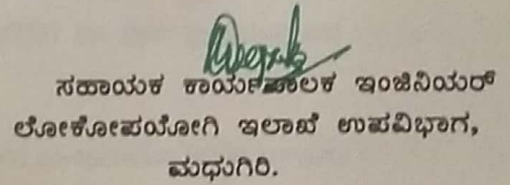 ಸಹಾಯಕ ಕಾರ್ಯಪಾಲಕ ಇಂಜಿನಿಯರ್
ಲೋಕೋಪಯೋಗಿ ಇಲಾಖೆ ಉಪವಿಭಾಗ,
ಮಧುಗಿರಿ.